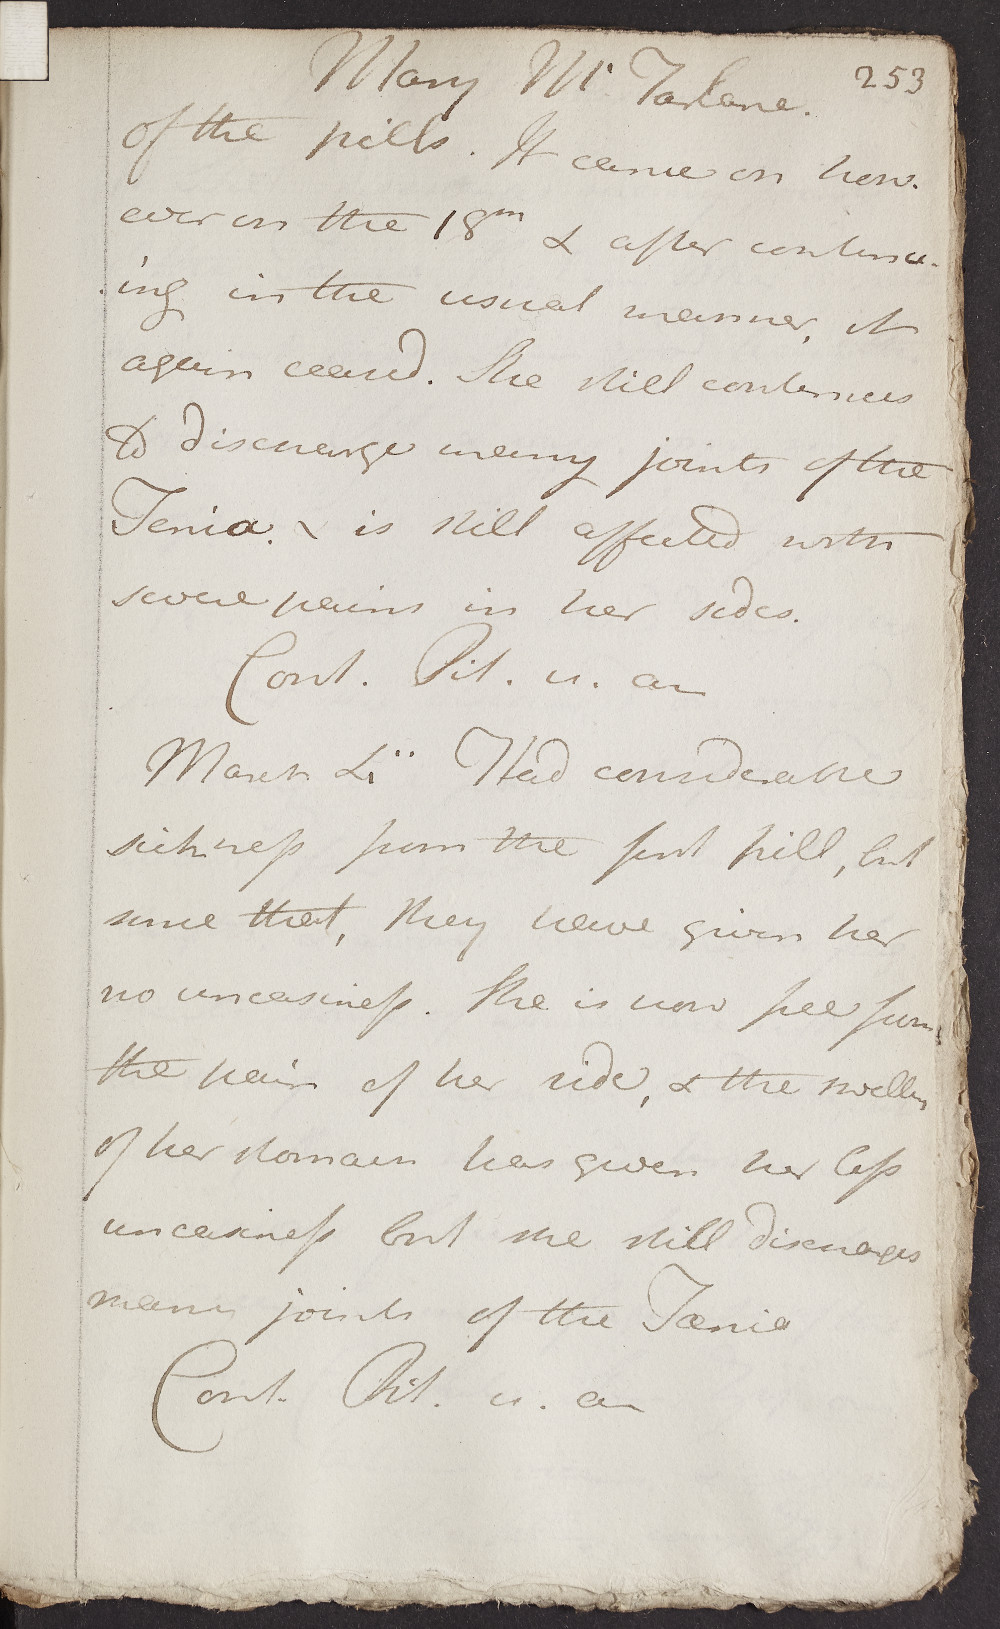 Mary McFarlane. 253
of the pills. It came on how-
ever on the 18th & after continu-
ing in the usual manner, it
again ceased. She still continues
to discharge many joints of the
Tenia. & is still affected with
severe pains in her sides.
Cont. Pil. u. an
March Had considerable
sickness from the first pill, but
since that, they have given her
no uneasiness. She is now free from
the pain of her side, & the swelling
of her stomach has given her less
uneasiness but she still discharges
many joints of the Tænia
Cont. Pil. u. an